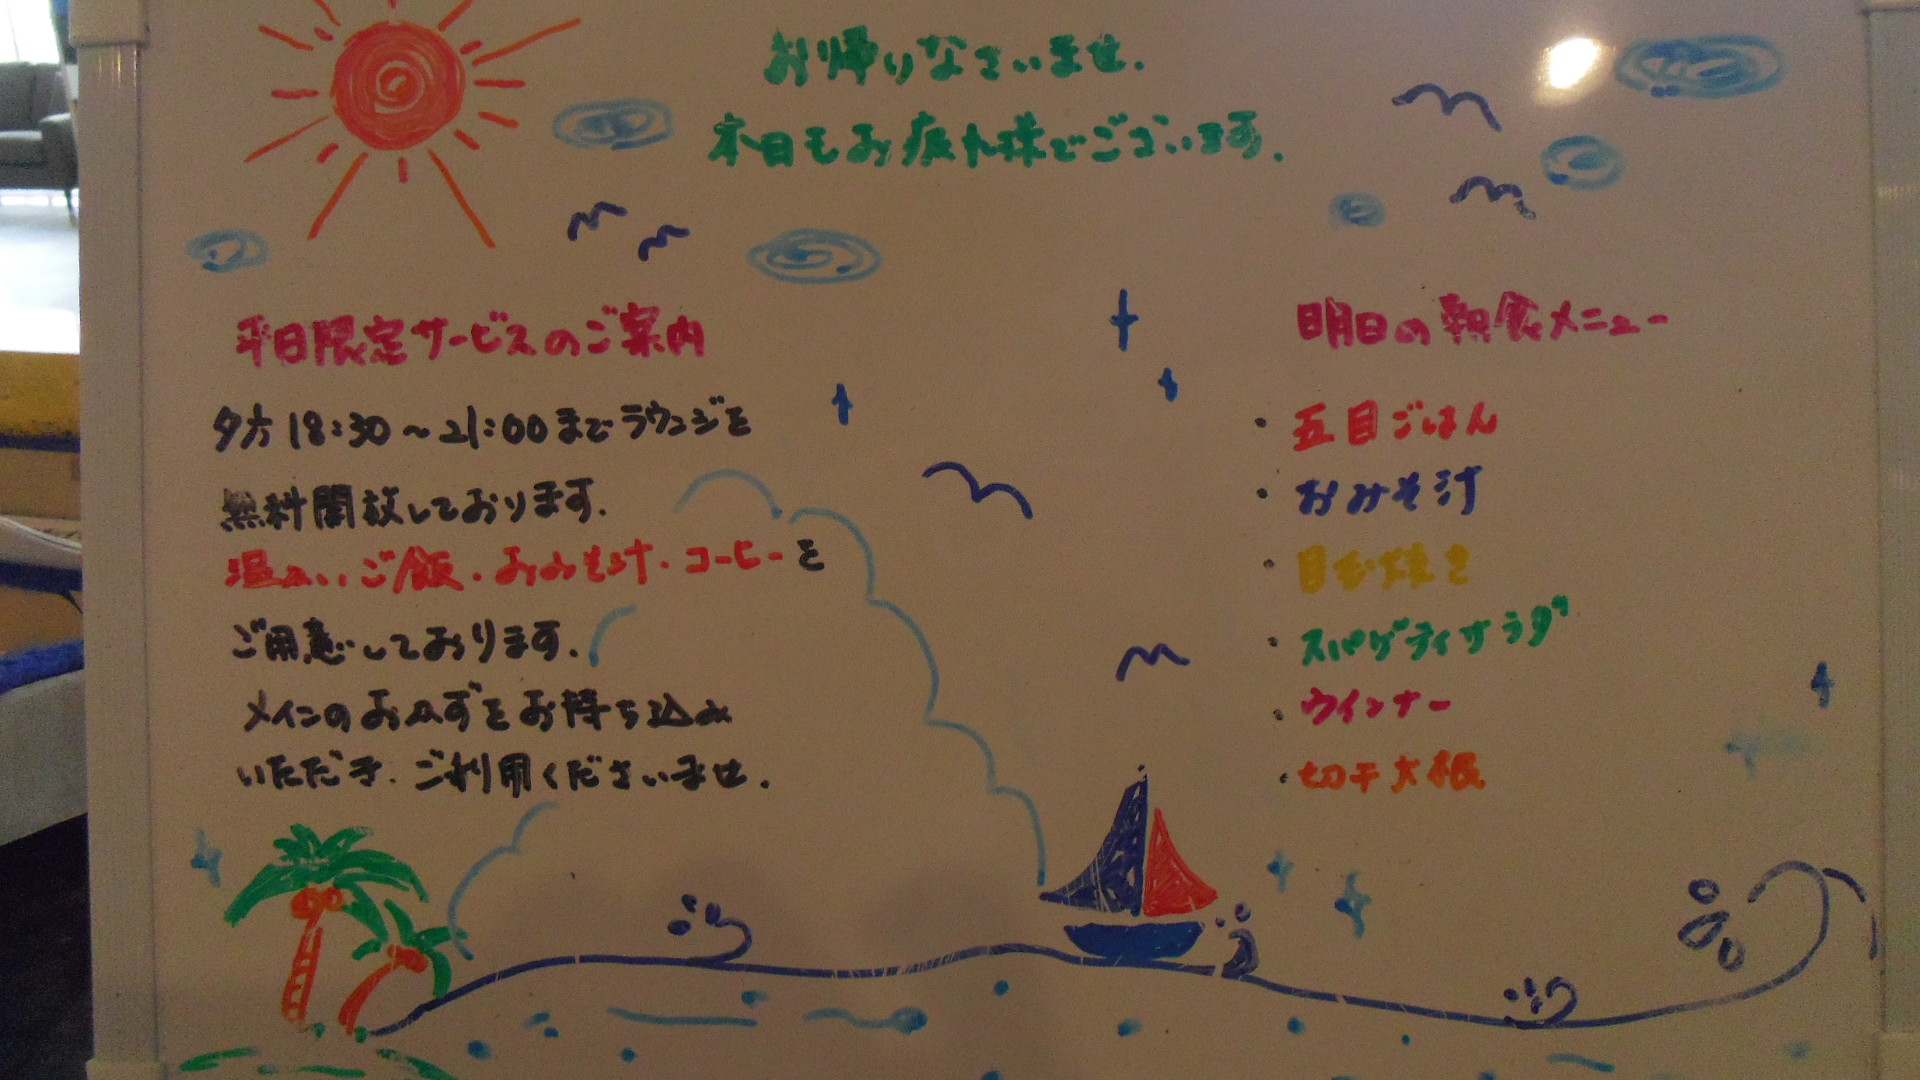 お帰りなさいませ.
本日もお疲れ様でございます.
平日限定サービスのご案内
夕方18:30～21:00までラウンジを
無料開放しております.
温かいご飯・おみそ汁・コーヒーを
ご用意しております.
メインのおかずをお持ち込み
いただき、ご利用くださいませ.
明日の朝食メニュー
・五目ごはん
・おみそ汁
・目玉焼き
・スパゲティサラダ
・ウインナー
・切干大根